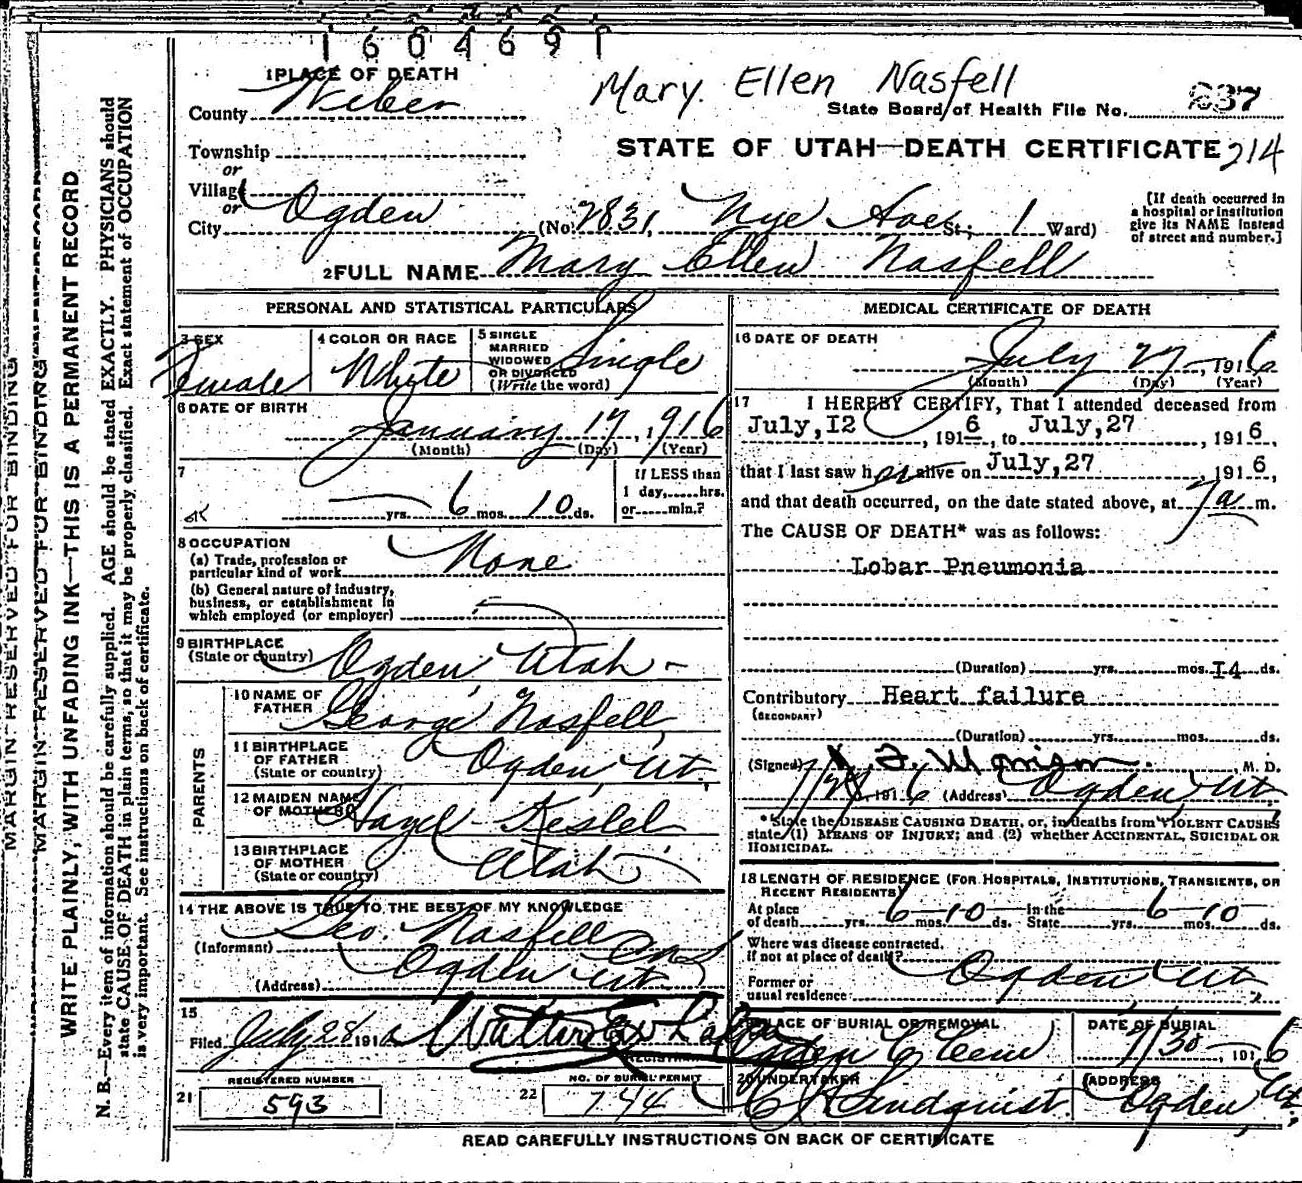 1604691
1 PLACE OF DEATH
Mary Ellen Nasfell
County Weber
State Board of Health File No. 237
Township
or
STATE OF UTAH—DEATH CERTIFICATE 214
Village
or
City Ogden (No. 2831, Nye Ave St.; 1 Ward)
[If death occurred in
a hospital or institution
give its NAME instead
of street and number.]
2 FULL NAME Mary Ellen Nasfell
PERSONAL AND STATISTICAL PARTICULARS
3 SEX
Female
4 COLOR OR RACE
Whyte
5 SINGLE
MARRIED
WIDOWED
OR DIVORCED
(Write the word)
Single
6 DATE OF BIRTH
January 17, 1916
(Month) (Day) (Year)
7
— yrs. 6 mos. 10 ds.
If LESS than
1 day,......hrs.
or......min.?
8 OCCUPATION
(a) Trade, profession or
particular kind of work None
(b) General nature of industry,
business, or establishment in
which employed (or employer)
9 BIRTHPLACE
(State or country) Ogden Utah -
PARENTS
10 NAME OF
FATHER George Nasfell
11 BIRTHPLACE
OF FATHER
(State or country) Ogden Ut.
12 MAIDEN NAME
OF MOTHER Hazel Keslel
13 BIRTHPLACE
OF MOTHER
(State or country) Utah
14 THE ABOVE IS TRUE TO THE BEST OF MY KNOWLEDGE
(Informant) Geo. Nasfell
(Address) Ogden Ut.
15
Filed July 28 1916
REGISTRAR
REGISTERED NUMBER
21 593
NO. OF BURIAL PERMIT
22 744
MEDICAL CERTIFICATE OF DEATH
16 DATE OF DEATH
July 27, 1916
(Month) (Day) (Year)
17 I HEREBY CERTIFY, That I attended deceased from
July, I2, 1916, to July, 27, 1916,
that I last saw her alive on July, 27 1916,
and that death occurred, on the date stated above, at 7 a m.
The CAUSE OF DEATH* was as follows:
Lobar Pneumonia
(Duration) yrs. mos. I4 ds.
Contributory Heart failure
(SECONDARY)
(Duration) yrs. mos. ds.
(Signed) M. D.
7/28, 1916 (Address) Ogden Ut.
*State the DISEASE CAUSING DEATH, or, in deaths from VIOLENT CAUSES
state (1) MEANS OF INJURY; and (2) whether ACCIDENTAL, SUICIDAL OR
HOMICIDAL.
18 LENGTH OF RESIDENCE (FOR HOSPITALS, INSTITUTIONS, TRANSIENTS, OR
RECENT RESIDENTS)
At place
of death yrs. 6 mos. 10 ds. In the
State yrs. 6 mos. 10 ds.
Where was disease contracted,
if not at place of death?
Former or
usual residence Ogden Ut.
19 PLACE OF BURIAL OR REMOVAL
Ogden
DATE OF BURIAL
7/30, 1916
20 UNDERTAKER
Lindquist
ADDRESS
Ogden, Ut.
READ CAREFULLY INSTRUCTIONS ON BACK OF CERTIFICATE
MARGIN RESERVED FOR BINDING
MARGIN RESERVED FOR BINDING
WRITE PLAINLY, WITH UNFADING INK—THIS IS A PERMANENT RECORD
N. B.—Every item of information should be carefully supplied. AGE should be stated EXACTLY. PHYSICIANS should
state CAUSE OF DEATH in plain terms, so that it may be properly classified. Exact statement of OCCUPATION
is very important. See instructions on back of certificate.